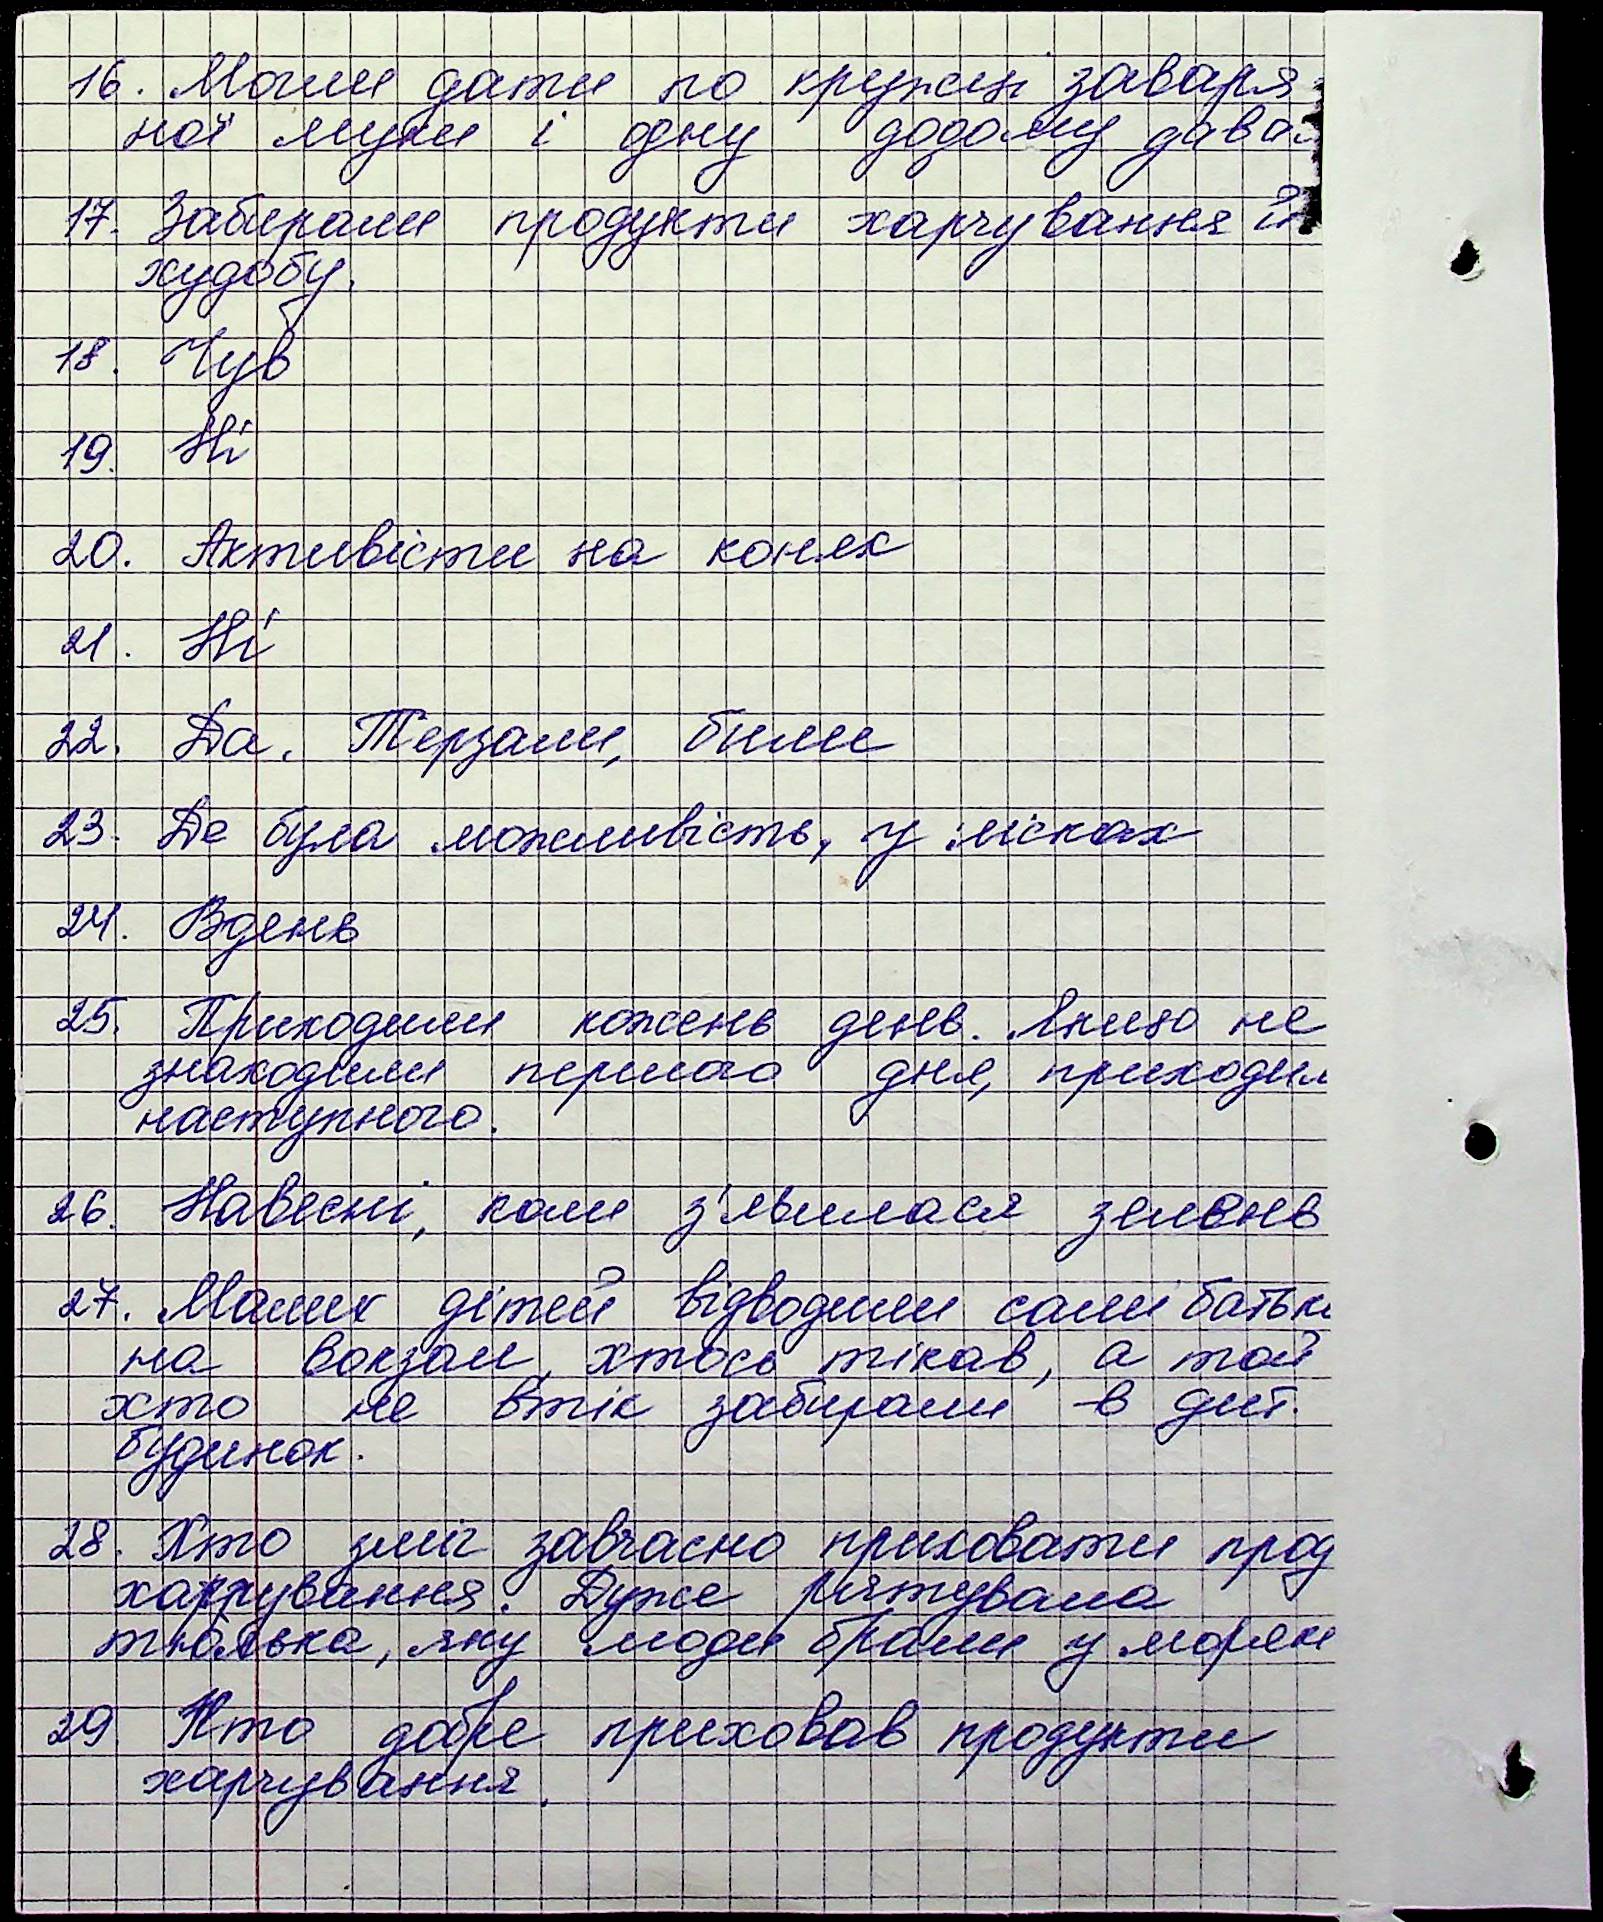 16. Могли дати по кружці заваря
ної муки і одну додому дава
17. Забирали продукти харчування й
худобу.
18. Чув
19. Ні
20. Активісти на конях
21. Ні
22. Да. Терзали, били
23. Де була можливість, у місках
24. Вдень
25. Приходили кожень день. Якщо не
знаходили першого дня, приходил
наступного.
26. Навесні, коли з'явилася зелень
27. Малих дітей відводили самі батьки
на вокзал, хтось тікав, а той
хто не втік забирали в дит.
будинок.
28. Хто зміг завчасно приховати прод
харчування. Дуже рятувала
тюлька, яку люди брали у моряк
29 Хто добре приховав продукти
харчування.